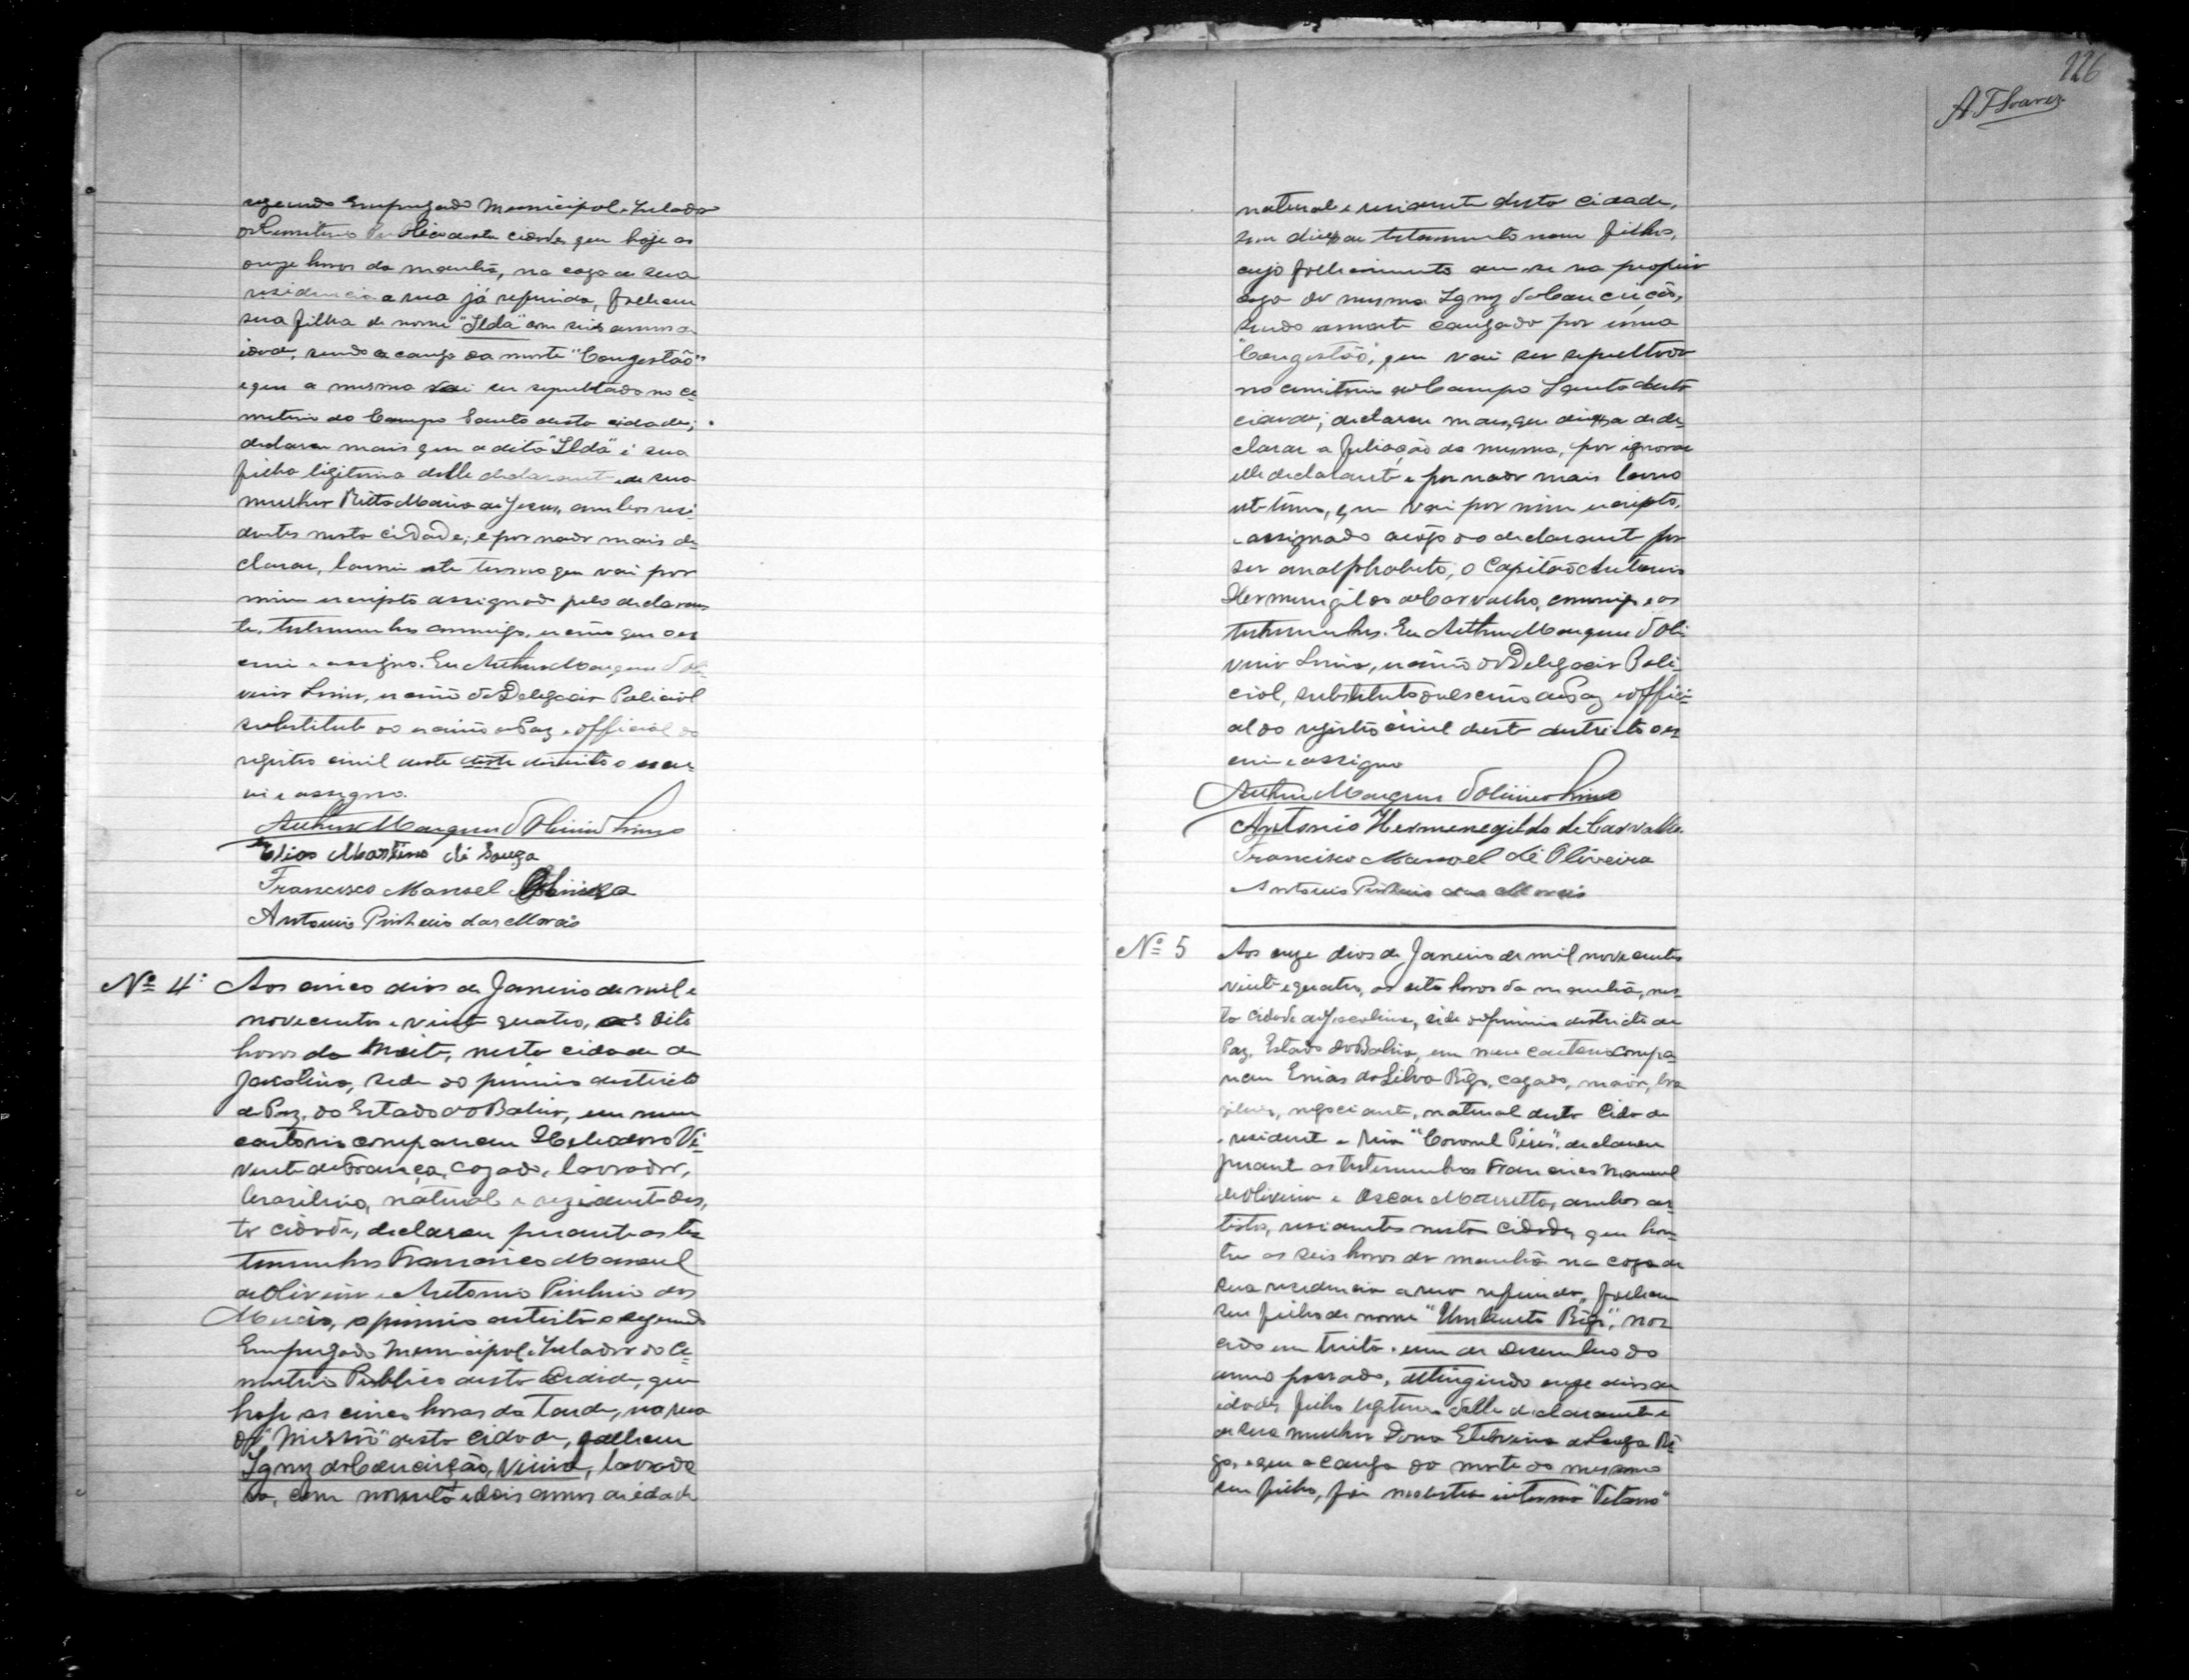 segundo Empregado Municipal e Zelador
do Cemiterio Publico desta cidade, que hoje as
onze horas da manhã, na caza de sua
residencia a rua já referida, falleceu
sua filha de nome "Ilda" com seis annos de
idade, sendo a cauza da morte "Congestão"
e que a mesma vai ser sepultada no Ce-
miterio do Campo Santo desta cidade;
declarou mais que a dita "Ilda" é sua
filha ligitima delle declarante e de sua
mulher Maria de Jesus, ambos resi-
dentes nesta cidade; e por nada mais de-
clarar, lavrei este termo que vai por
mim escripto assignado pelo declaran-
te, testemunhas commigo, escrivão que o es-
crevi e assigno. Eu Arthur Marques d'Oli-
veira Lima, escrivão da Delegacia Policial
substituto do escrivão de Paz e official do
registro civil deste deste districto o escre-
vi e assigno.
Arthur Marques d'Oliveira Lima
Elias Martins de Souza
Francisco Manoel Oliveira
Antonio Pinheiro das
Nº 4 Aos cinco dias de Janeiro de mil e
novecentos e vinte quatro, as oito
horas da noite, nesta cidade de
Jacobina, sede do primeiro destricto
de Paz, do Estado da Bahia, em meu
cartorio compareceu Heliodoro Vi-
cente de França, cazado, lavrador,
brasileiro, natural e rezidente des-
ta cidade, declarou perante as tes-
temunhas Francisco Manoel
de Oliveira e Antonio Pinheiro das
o primeiro artista o segundo
Empregado Municipal e Zelador do Ce-
miterio Publico desta Cidade, que
hoje as cinco horas da tarde, na rua
da "Missão" desta cidade, falleceu
Ignez da Conceição, viuva, lavrado-
ra, com noventa e dois annos de edade
226
A F Soares
natural e residente desta cidade,
sem deixar testamento nem filhos,
cujo fallecimento deu-se na propria
caza da mesma Ignez da Conceição,
sendo a morte cauzada por uma
"Congestão", que vai ser sepultada
no cemiterio do Campo Santo desta
cidade; declarou mais, que deixa de de-
clarar a filiação da mesma, por ignorar
elle declarante e por nada mais lavro
este termo, que vai por mim escripto,
e assignado a rogo do declarante por
ser analphabeto, o Capitão Antonio
Hermenegildo de Carvalho, commigo e as
testemunhas. Eu Arthur Marques d'Oli-
veira Lima, escrivão da Delegacia Poli-
cial, substituto do escrivão de Paz e offici-
al do registro civil deste destricto o es-
crevi e assigno
Arthur Marques d'Oliveira Lima
Antonio Hermenegildo de Carvalho
Francisco Manoel de Oliveira
Antonio Pinheiro das
Nº 5 Aos onze dias de Janeiro de mil novecentos
vinte e quatro, as oito horas da manhã, nes-
ta cidade de Jacobina, séde do primeiro destricto de
Paz, Estado da Bahia, em meu cartorio compa-
receu da Silva cazado, maior, bra-
zileiro, negociante, natural desta Cidade
e residente a Rua "Coronel declarou
perante as testemunhas Francisco Manoel
de Oliveira e Oscar ambos ar-
tistas, residentes nesta Cidade, que hon-
tem as seis horas da manhã na caza de
sua residencia a rua referida, falleceu
seu filho de nome "Umberto nas-
cido em trinta e um de Dezembro do
anno passado, attingindo onze dias de
idade, filho legitimo delle declarante e
de sua mulher Dona de Souza
e que a cauza da morte do mesmo
seu filho, foi molestia interna "Tetano"